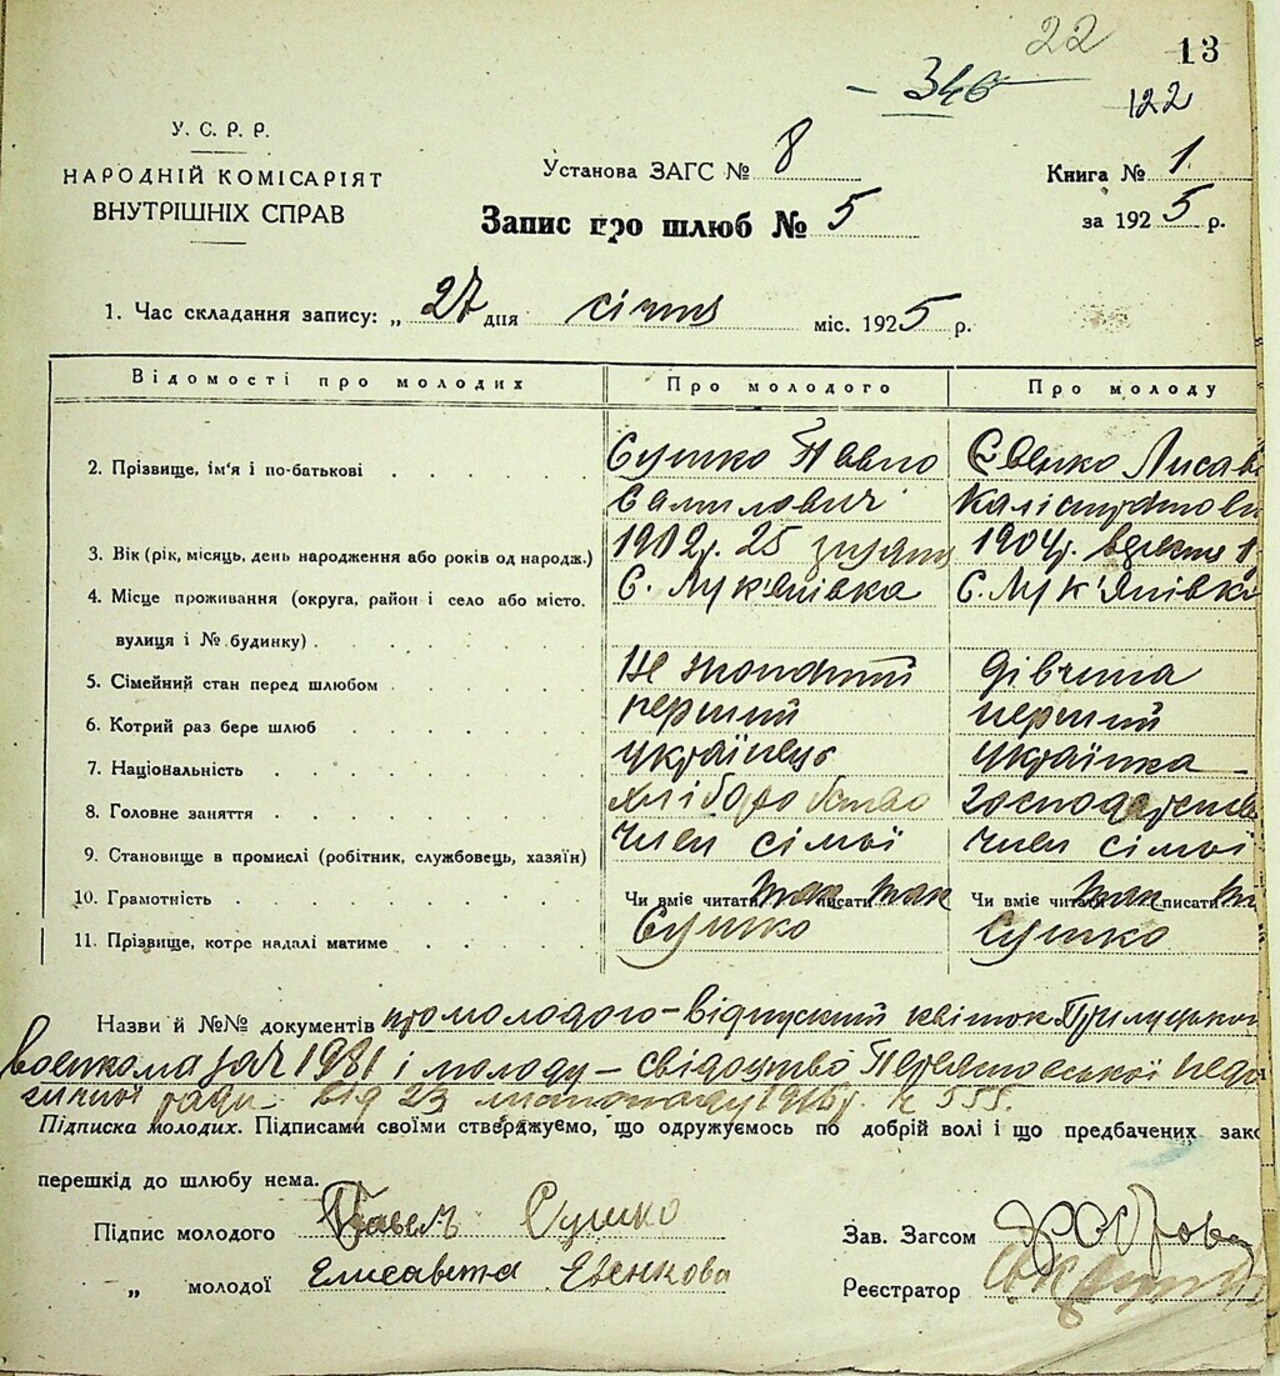 22
13
346
122
У. С. Р. Р.
НАРОДНІЙ КОМІСАРІЯТ
ВНУТРІШНІХ СПРАВ
Установа ЗАГС № 8
Книга № 1
Запис про шлюб № 5
за 1925 р.
1. Час складання запису: „ 27 дня січня міс. 1925 р.
Відомості про молодих Про молодого Про молоду
2. Прізвище, ім'я і по-батькові Сушко Павло Євенко Лисав
Самилович Калістратови
3. Вік (рік, місяць, день народження або років од народж.) 1902р. 25 1904р.
4. Місце проживання (округа, район і село або місто, С. Лук'янівка С. Лук'янівка
вулиця і № будинку)
5. Сімейний стан перед шлюбом Не жонатий дівчина
6. Котрий раз бере шлюб перший перший
7. Національність українець українка
8. Головне заняття хліборобство господарств
9. Становище в промислі (робітник, службовець, хазяїн) член сімої член сімої
10. Грамотність Чи вміє читати так писати так Чи вміє читати так писати т
11. Прізвище, котре надалі матиме Сушко Сушко
Назви й №№ документів про молодого - відпускний квіток Прилуцького
воєнкома за № 1981 і молоду - свідоцтво педа
гичної ради від 23 1916р. № 555.
Підписка молодих. Підписами своїми стверджуємо, що одружуємось по добрій волі і що предбачених зако
перешкід до шлюбу нема.
Підпис молодого Павелъ Сушко
Зав. Загсом
„ молодої Елисавета Евенкова
Реєстратор